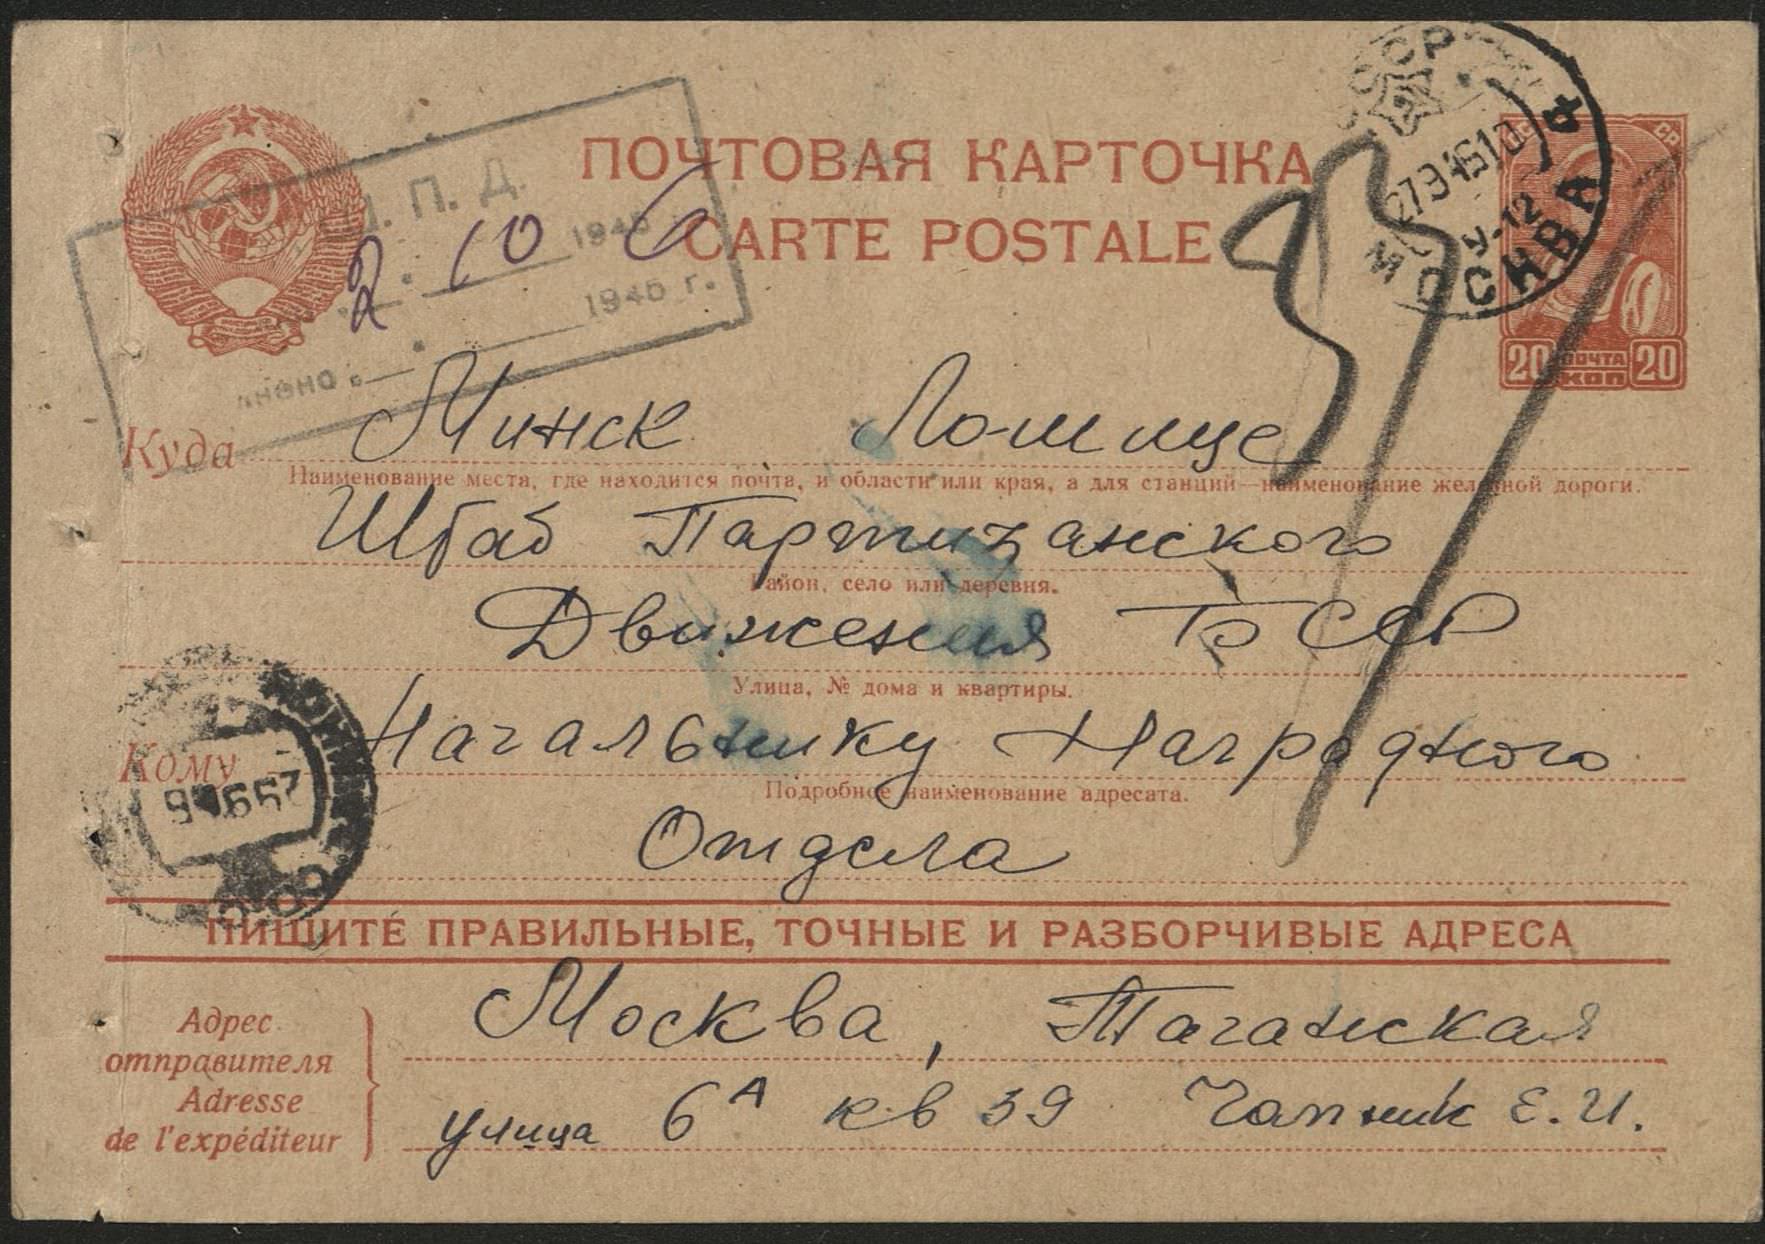 СССР
МОСКВА 4
Ш. П. Д.
ПОЧТОВАЯ КАРТОЧКА
2 10 6
1945
CARTE POSTALE
1945 г.
20 ПОЧТА КОП 20
Куда Минск Лошице
Наименование места, где находится почта, и области или края, а для станций—наименование железной дороги.
Штаб Партизанского
Район, село или деревня.
Движения БССР
Улица, № дома и квартиры.
Кому Начальнику Наградного
Подробное наименование адресата.
Отдела
ПИШИТЕ ПРАВИЛЬНЫЕ, ТОЧНЫЕ И РАЗБОРЧИВЫЕ АДРЕСА
Адрес отправителя
Adresse de l'expéditeur
Москва, Таганская
улица 6А кв 39 Чапник Е.И.